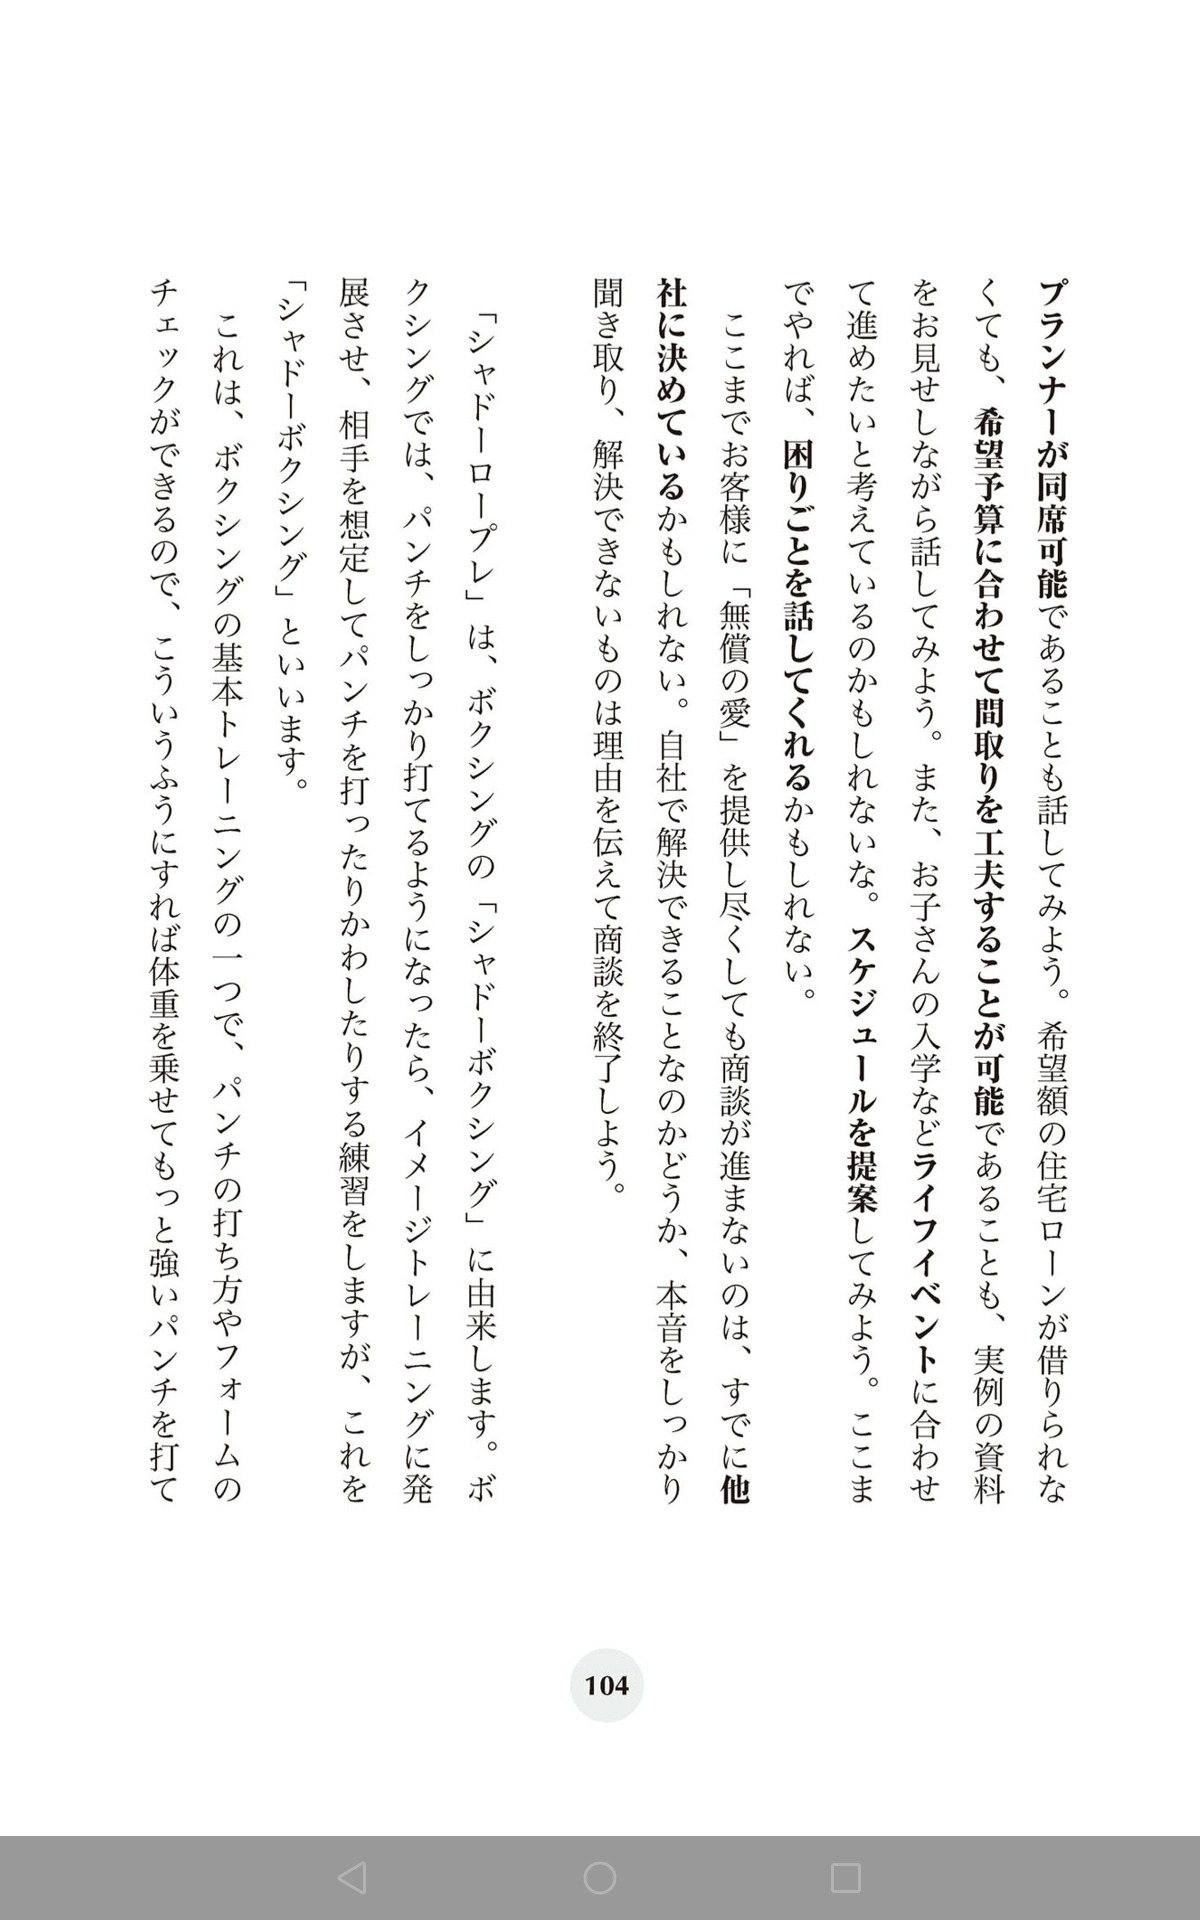 プランナーが同席可能であることも話してみよう。希望額の住宅ローンが借りられな
くても、希望予算に合わせて間取りを工夫することが可能であることも、実例の資料
をお見せしながら話してみよう。また、お子さんの入学などライフイベントに合わせ
て進めたいと考えているのかもしれないな。スケジュールを提案してみよう。ここま
でやれば、困りごとを話してくれるかもしれない。
ここまでお客様に「無償の愛」を提供し尽くしても商談が進まないのは、すでに他
社に決めているかもしれない。自社で解決できることなのかどうか、本音をしっかり
聞き取り、解決できないものは理由を伝えて商談を終了しよう。
「シャドーロープレ」は、ボクシングの「シャドーボクシング」に由来します。ボ
クシングでは、パンチをしっかり打てるようになったら、イメージトレーニングに発
展させ、相手を想定してパンチを打ったりかわしたりする練習をしますが、これを
「シャドーボクシング」といいます。
これは、ボクシングの基本トレーニングの一つで、パンチの打ち方やフォームの
チェックができるので、こういうふうにすれば体重を乗せてもっと強いパンチを打て
104